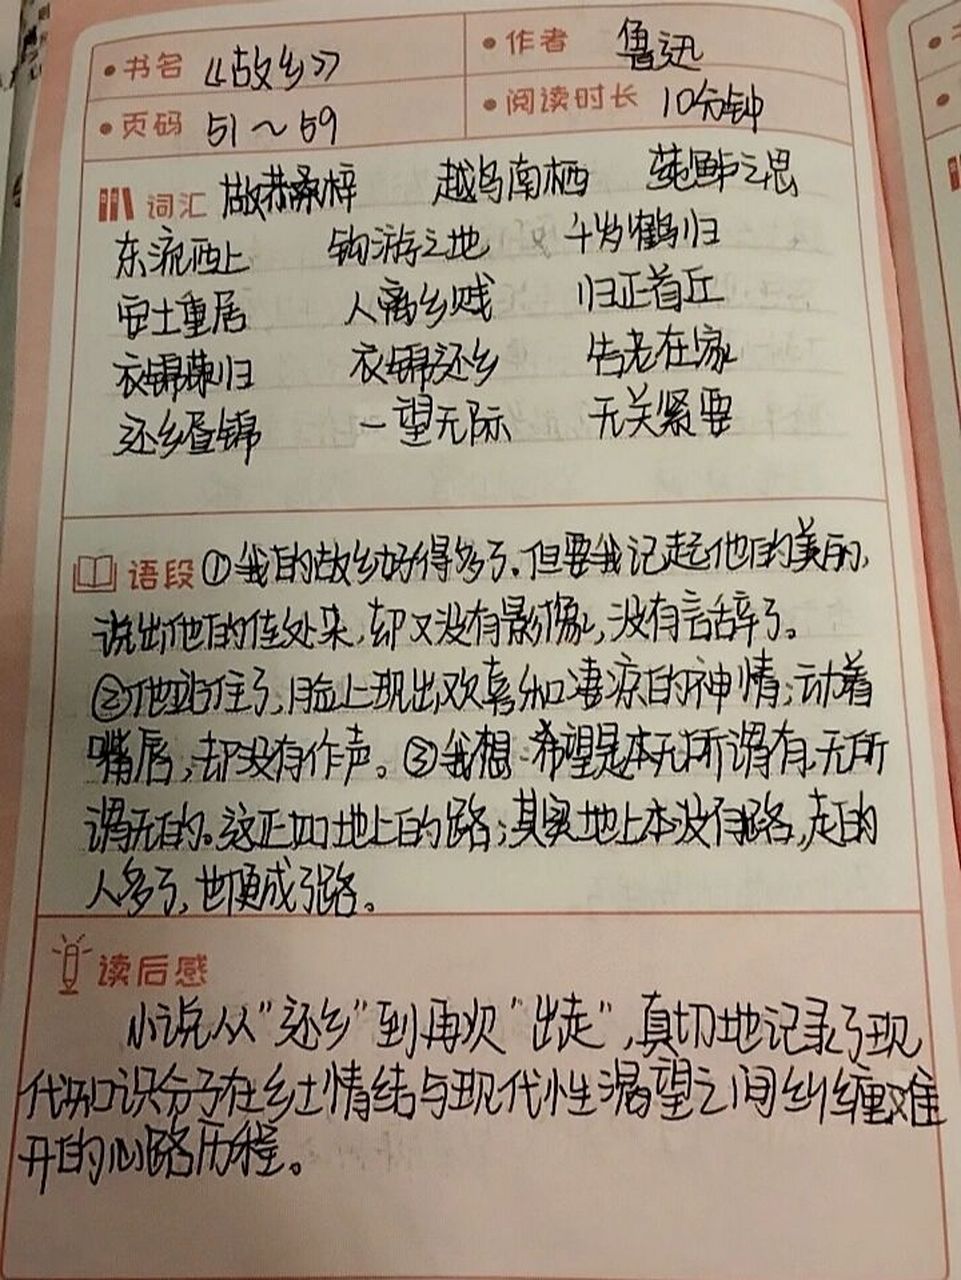 书名 《故乡》 作者 鲁迅
页码 51～59 阅读时长 10分钟
词汇 敬恭桑梓 越鸟南栖 莼鲈之思
东流西上 钓游之地 千岁鹤归
安土重居 人离乡贱 归正首丘
衣锦荣归 衣锦还乡 告老在家
还乡昼锦 一望无际 无关紧要
语段 ①我的故乡好得多了。但要我记起他的美丽，
说出他的佳处来，却又没有影像，没有言辞了。
②他站住了，脸上现出欢喜和凄凉的神情；动着
嘴唇，却没有作声。③我想：希望是本无所谓有，无所
谓无的。这正如地上的路；其实地上本没有路，走的
人多了，也便成了路。
读后感
小说从"还乡"到再次"出走"，真切地记录了现
代知识分子在乡土情结与现代性渴望之间纠缠难
开的心路历程。